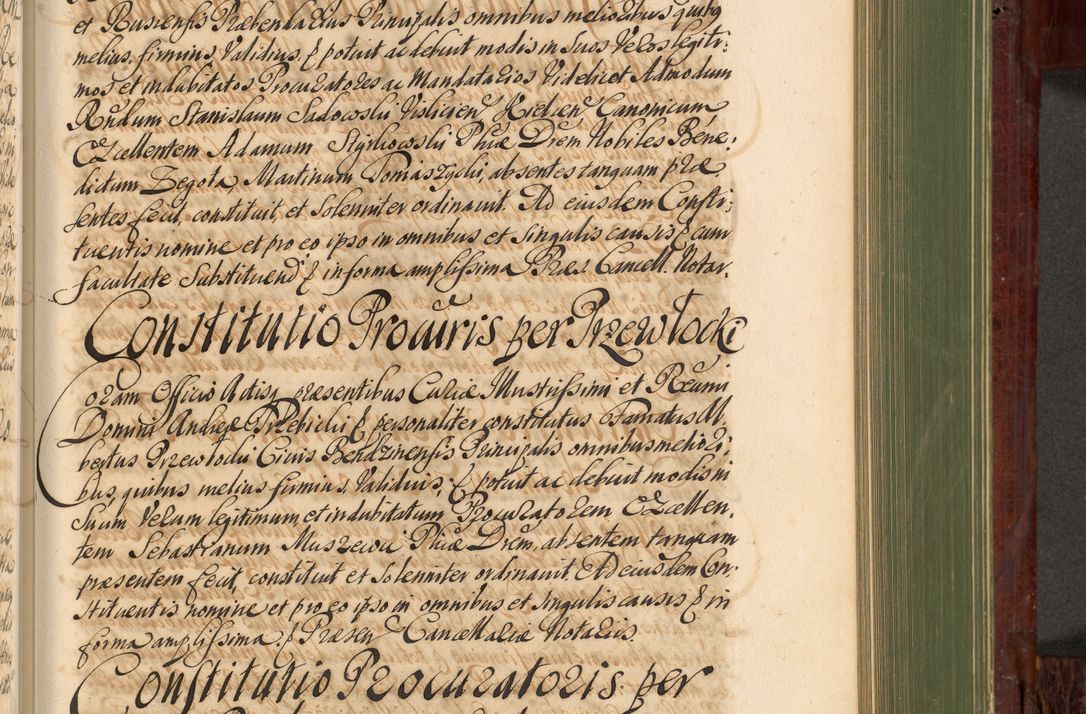 et Busiensis Præbendarius Principalis omnibus melioribus quibq
melius, firmius, Validius, & potuit ac debuit modis in Suos Veros legiti:
mos et indubitatos Procuratores ac Mandatarios Videlicet Admodum
Rndum Stanislaum Sadowski Vislicien Kielcen Canonicum
Excellentem Adamum Styrkowski Phiæ Drem Nobiles Bene:
dictum Zegota, Martinum Tomaszycki, absentes tanquam præ
sentes fecit, constituit, et Solenniter ordinavit. Ad eiusdem Consti:
tuentis nomine et pro eo ipso in omnibus et Singulis causis & cum
facultate Substituend & in forma amplissima Præs. Cancell. Notar.
Constitutio Procuris per Przewłocki
Coram Officio Actisq præsentibus Curiæ Illustrissimi et Reumi
Domini Andreæ Trzebicki & personaliter constitutus Famatus Al,
bertus Przewłocki Civis Bendzinensis Principalis omnibus meliori;
bus, quibus melius firmius, Validius, & potuit ac debuit modis in
Suum Verum legitimum et indubitatum Procuratorem Excellen,
tem Sebastianum Muszewic Phiæ Drem, absentem tanquam
præsentem fecit, constituit et Solenniter ordinavit. Ad eiusdem Con,
stituentis nomine et pro eo ipso in omnibus et Singulis causis & in
forma amplissima & Præsen Cancellariæ Notariis.
Constitutio Procuratoris per